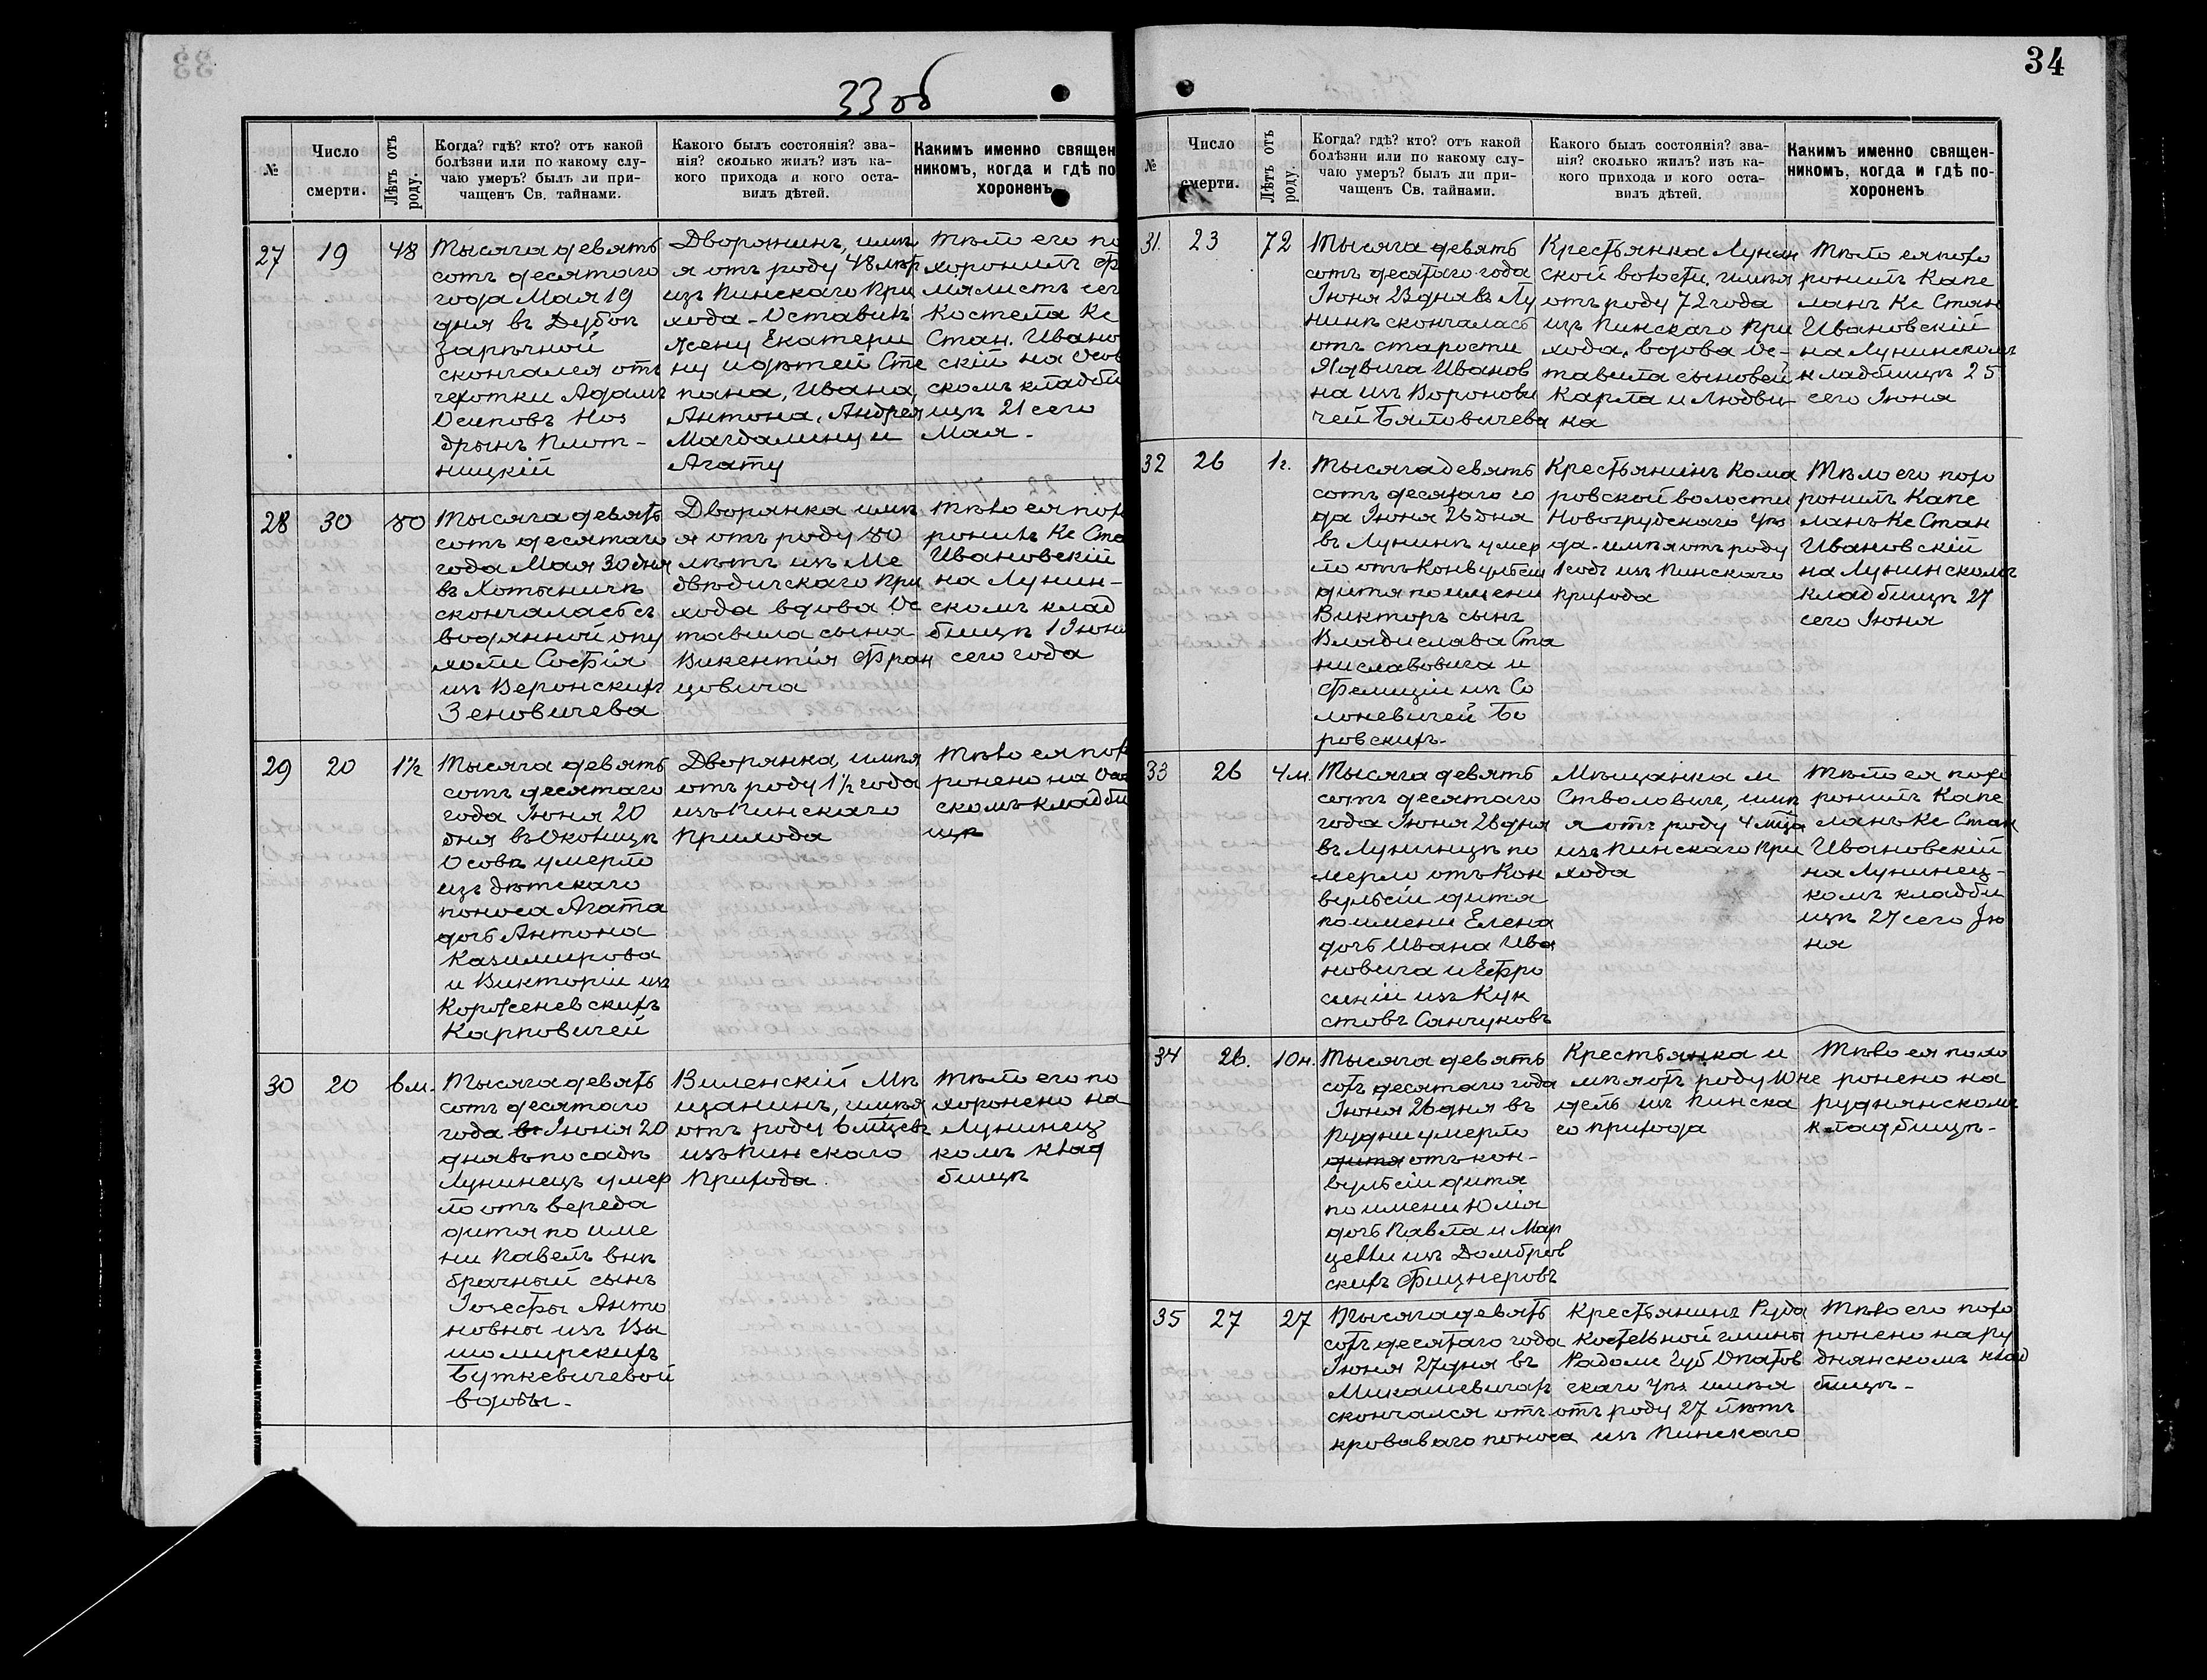 33об
34
№
Число
смерти.
Лѣтъ отъ
роду.
Когда? гдѣ? кто? отъ какой
болѣзни или по какому слу-
чаю умеръ? былъ ли при-
чащенъ Св. тайнами.
Какого былъ состоянія? зва-
нія? сколько жилъ? изъ ка-
кого прихода и кого оста-
вилъ дѣтей.
Какимъ именно священ
никомъ, когда и гдѣ по
хороненъ
27
19
48
Тысяча девять
сотъ десятаго
года Мая 19
дня въ Дубоѣ
Зарѣчной
скончался отъ
чехотки Адамъ
Осиповъ Ноз
дрынъ Плот-
ницкій
Дворянинъ, имѣ
я отъ роду 48 лѣт
изъ Пинскаго При
хода - Оставилъ
жену Екатери
ну и дѣтей Сте
пана, Ивана,
Антона, Андрея
Магдалину и
Агату
Тѣло его по
хоронилъ Ф
мялистъ сег
Костела Кс
Стан. Ивано
скій на Осов
скомъ кладби
щѣ 21 сего
Мая -
28
30
80
Тысяча девять
сотъ десятаго
года Мая 30 дня
въ Хотыничѣ
скончалась съ
водянной опу
холи Софія
изъ Веронскихъ
Зеновичева
Дворянка имѣ
я отъ роду 80
лѣтъ изъ Ме
двѣдичскаго При
хода вдова Ос
тавила сына
Викентія Фран
цовича
Тѣло ея пох
ронилъ Кс Ста
Ивановскій
на Лунин-
скомъ клад
бищѣ 1 Іюня
сего года
29
20
1½
Тысяча девять
сотъ десятаго
года Іюня 20
дня въ Околицѣ
Осовѣ умерло
изъ дѣтскаго
поноса Агата
дочь Антона
Казимирова
и Викторіи изъ
Корженевскихъ
Карповичей
Дворянка, имѣя
отъ роду 1½ года
изъ Пинскаго
Прихода
Тѣло ея пох
ронено на Осов
скомъ кладби
щѣ
30
20
6м.
Тысяча девять
сотъ десятаго
года въ Іюня 20
дня въ посадѣ
Лунинецъ умер
ло отъ вереда
дитя по име
ни Павелъ внѣ
брачный сынъ
Іозефы Анто
новны изъ Вы
шомирскихъ
Буткевичевой
вдовы -
Виленскій Мѣ
щанинъ, имѣя
отъ роду 6 мѣцевъ
изъ Пинскаго
Прихода.
Тѣло его по
хоронено на
Лунинец
комъ клад
бищѣ
№
Число
смерти.
Лѣтъ отъ
роду.
Когда? гдѣ? кто? отъ какой
болѣзни или по какому слу-
чаю умеръ? былъ ли при-
чащенъ Св. тайнами.
Какого былъ состоянія? зва-
нія? сколько жилъ? изъ ка-
кого прихода и кого оста-
вилъ дѣтей.
Какимъ именно священ-
никомъ, когда и гдѣ по-
хороненъ
31.
23
72
Тысяча девять
сотъ десятаго года
Іюня 23 дня въ Лу
нинѣ скончалась
отъ старости
Ядвига Иванов
на изъ Воронови
чей Бяловичева
Крестьянка Лунин
ской волости, имѣя
отъ роду 72 года
изъ Пинскаго При
хода, вдова Ос-
тавила сыновей
Карла и Людви-
ка
Тѣло ея похо
ронилъ Капе
ланъ Кс Стан
Ивановскій
на Лунинскомъ
кладбищѣ 25
сего Іюня
32
26
1г.
Тысяча девять
сотъ десятаго го
да Іюня 26 дня
въ Лунинѣ умер
ло отъ Конвульсіи
дитя по имени
Викторъ сынъ
Владислава Ста
ниславовича и
Фелиціи изъ Со
лоневичей Бо
ровскихъ -
Крестьянинъ Кома
ровской волости
Новогрудскаго Уѣз
да - имѣя отъ роду
1 годъ изъ Пинскаго
Прихода
Тѣло его похо
ронилъ Капе
ланъ Кс Стан
Ивановскій
на Лунинскомъ
кладбищѣ 27
сего Іюня
33
26
4м.
Тысяча девять
сотъ десятаго
года Іюня 26 дня
въ Лунинцѣ по
мерло отъ Кон
вульсіи дитя
по имени Елена
дочь Ивана Ива
новича и Ефро
синіи изъ Кук
стовъ Санчуковъ
Мѣщанка м
Стволовичъ, имѣ
я отъ роду 4 мѣца
изъ Пинскаго При
хода
Тѣло ея похо
ронилъ Капе
ланъ Кс Стан
Ивановскій
на Лунинец-
комъ кладби
щѣ 27 сего Ію
ня
34
26.
10н.
Тысяча девять
сотъ десятаго года
Іюня 26 дня въ
Рудни умерло
дитя отъ кон-
вульсіи дитя
по имени Юлія
дочь Павла и Мар
целли изъ Домбров
скихъ Фицнеровъ
Крестьянка и
мѣя отъ роду 10 не
дель изъ Пинска
го прихода
Тѣло ея похо
ронено на
руднянскомъ
кладбищѣ -
35
27
27
Тысяча девять
сотъ десятаго года
Іюня 27 дня въ
Микашевичахъ
скончался отъ
кроваваго поноса
Крестьянинъ Руда
костельной гмины
Радомс Губ Опатов
скаго Уѣз имѣя
отъ роду 27 лѣтъ
изъ Пинскаго
Тѣло его похо
ронено на ру
днянскомъ клад
бищѣ -